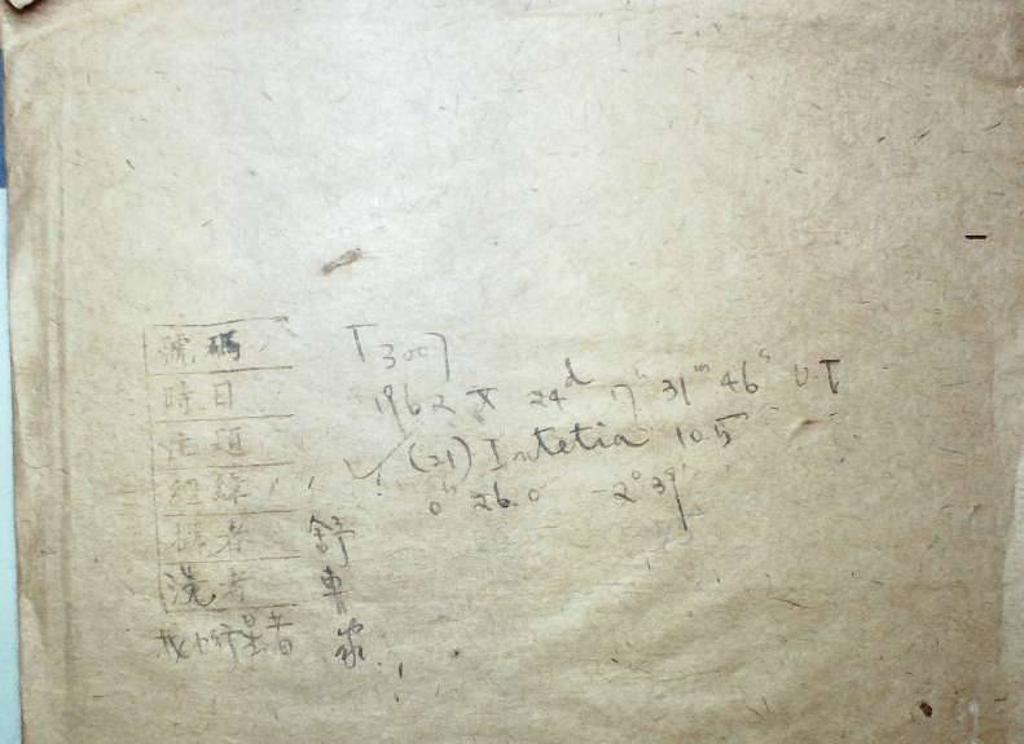 號碼 T3007
時日 1962 X 24ᵈ 17ʰ 31ᵐ 46ˢ U.T
主題 ✓ (21) Intetia 10.5
經緯 0ʰ 26.0 -2° 39'
攝者 舒
洗者 曹
找小行星者